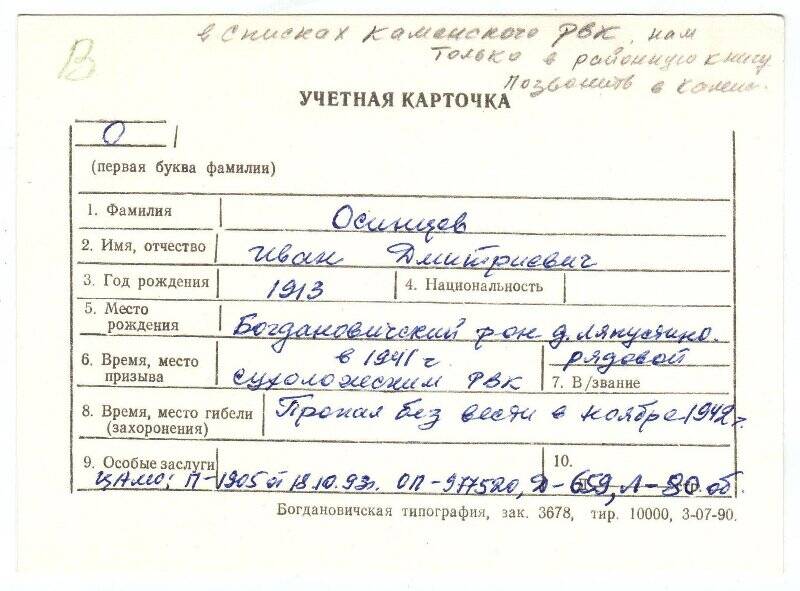 В
в списках Каменского РВК, нам
только в районную книгу
Позвонить в Камен.
УЧЕТНАЯ КАРТОЧКА
О
(первая буква фамилии)
1. Фамилия Осинцев
2. Имя, отчество Иван Дмитриевич
3. Год рождения 1913 4. Национальность
5. Место рождения Богдановичский р-он д. Ляпустино.
6. Время, место призыва в 1941 г. Сухоложским РВК
7. В/звание рядовой
8. Время, место гибели (захоронения) Пропал без вести в ноябре 1942 г.
9. Особые заслуги 10.
ЦАМО: П-1905 от 18.10.93г. ОП-977520, Д-659, Л-80 об.
Богдановичская типография, зак. 3678, тир. 10000, 3-07-90.